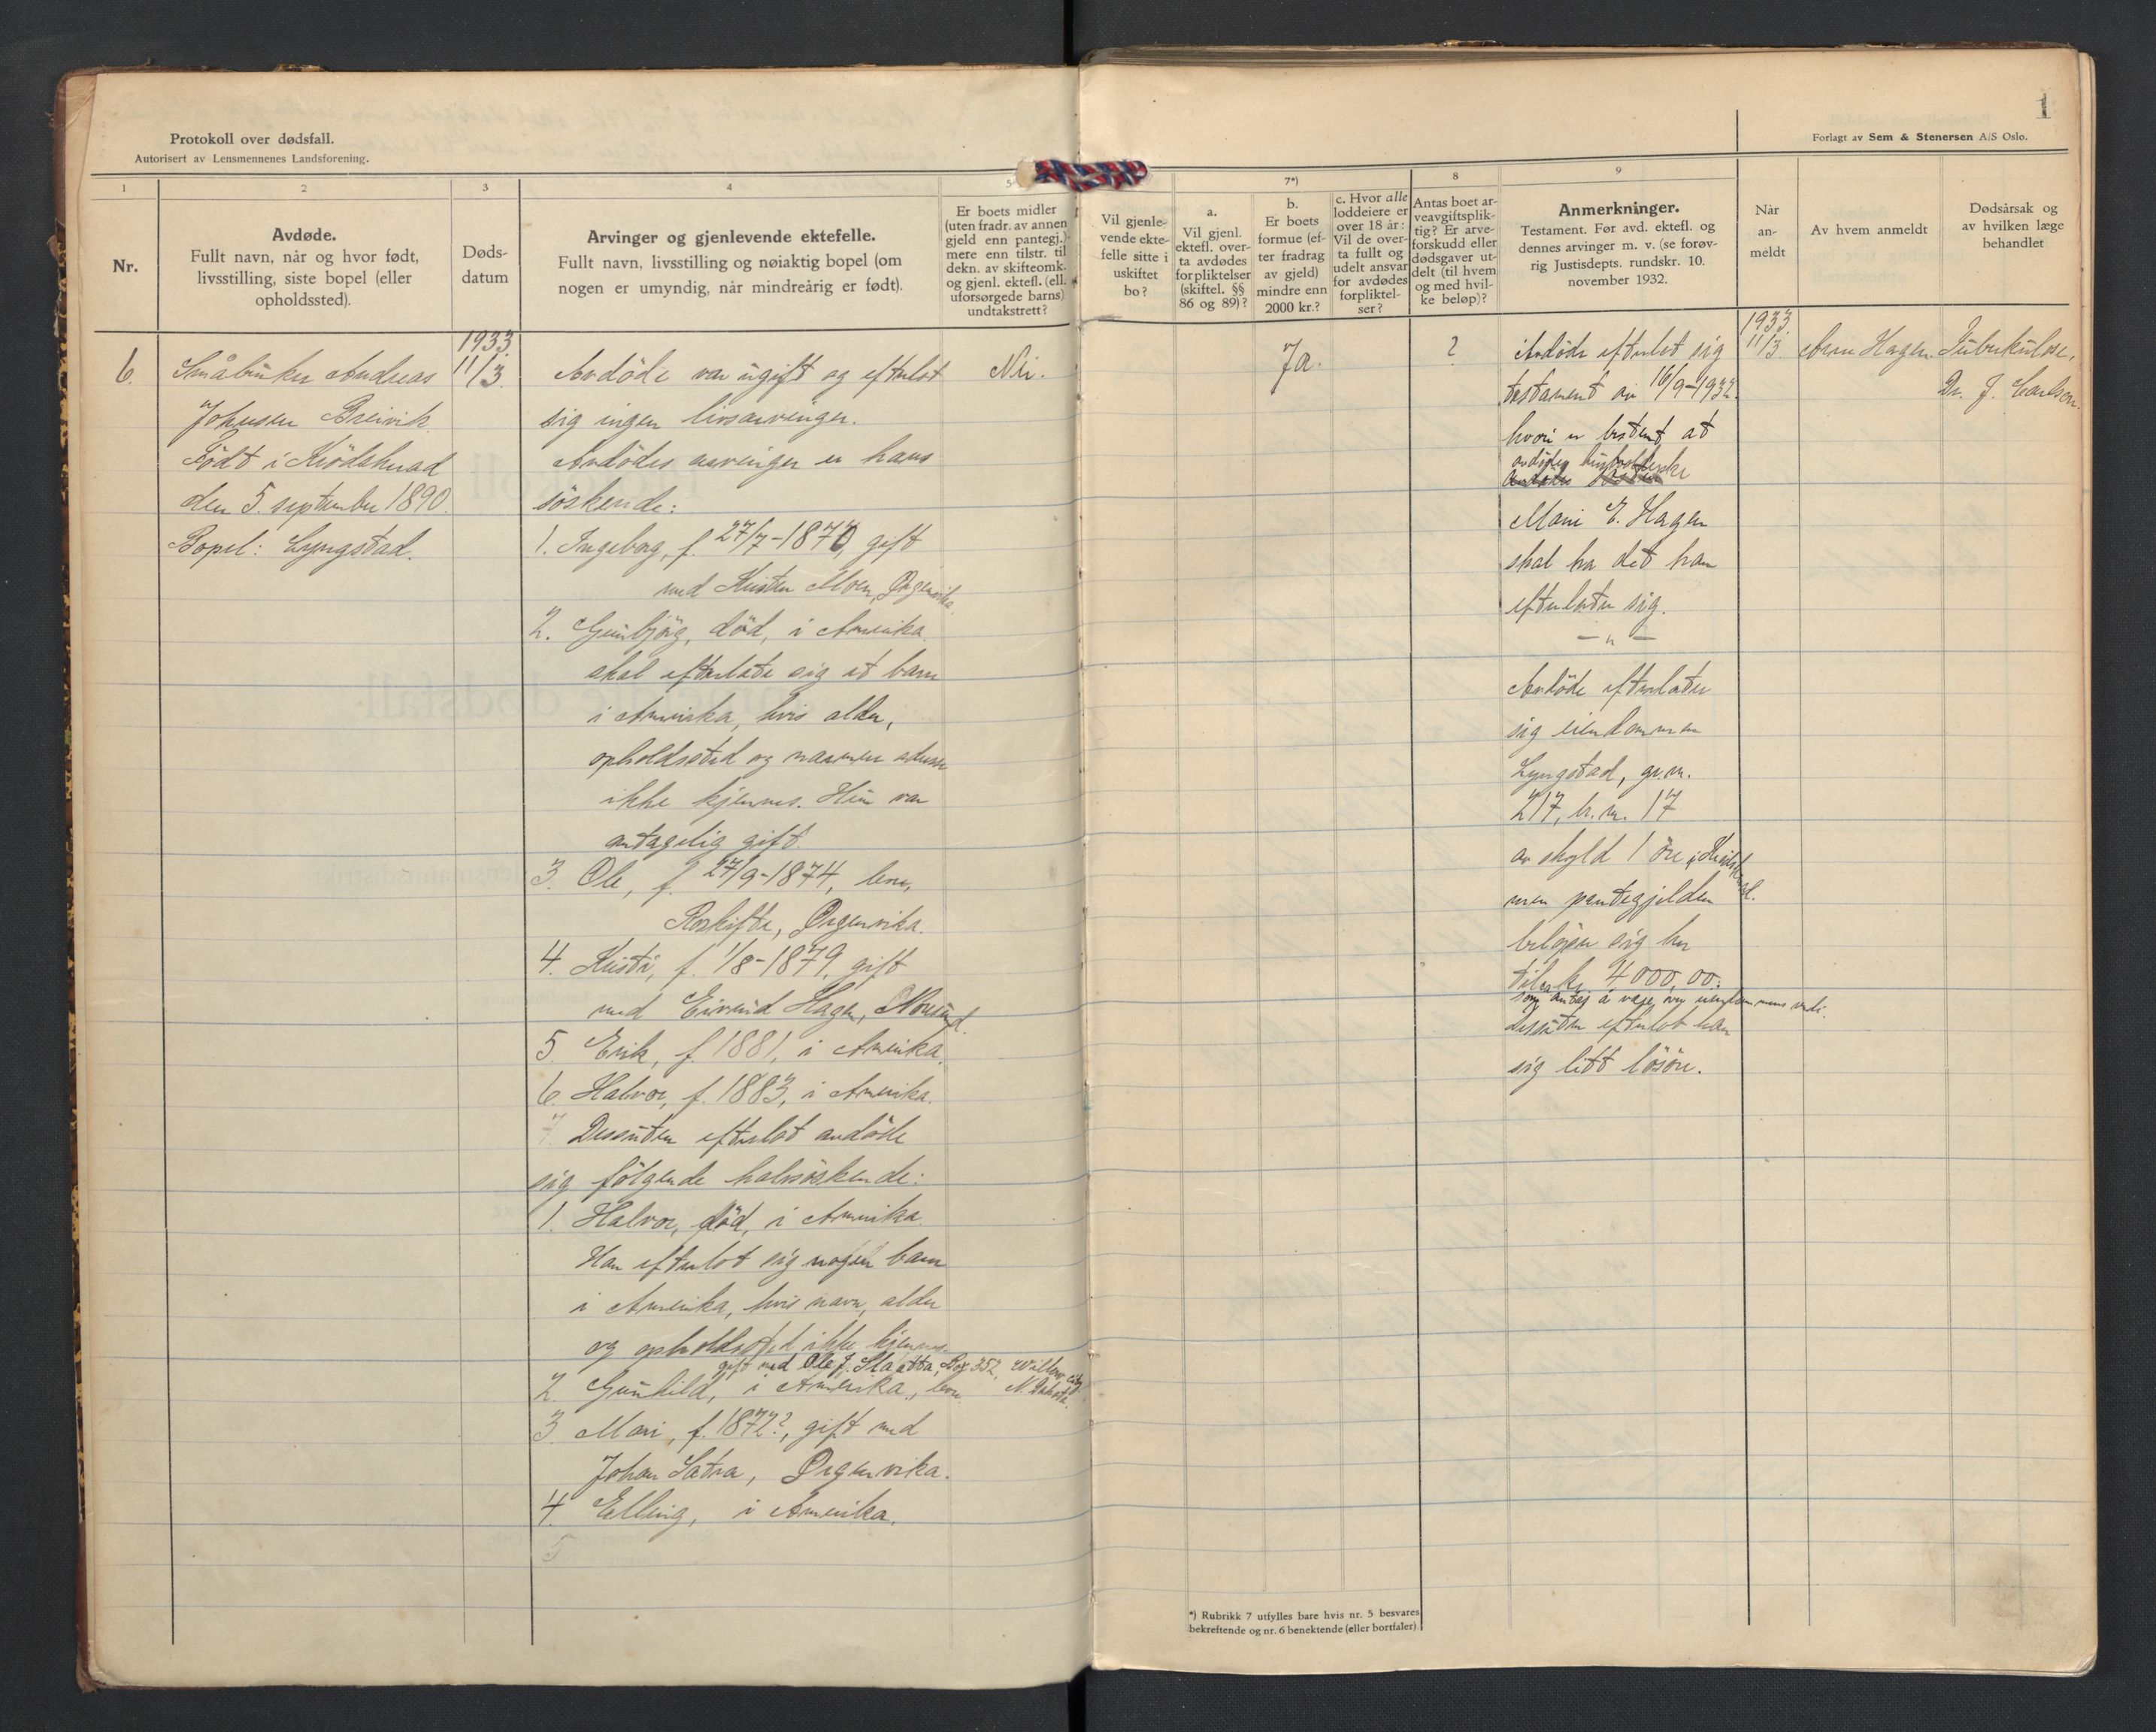 Protokoll over dødsfall.
Autorisert av Lensmennenes Landsforening.
1
Forlagt av Sem & Stenersen A/S Oslo.
1
Nr.
2
Avdøde.
Fullt navn, når og hvor født,
livsstilling, siste bopel (eller
opholdssted).
3
Døds-
datum
4
Arvinger og gjenlevende ektefelle.
Fullt navn, livsstilling og nøiaktig bopel (om
nogen er umyndig, når mindreårig er født).
5
Er boets midler
(uten fradr. av annen
gjeld enn pantegj.)
mere enn tilstr. til
dekn. av skifteomk.
og gjenl. ektefl. (ell.
uforsørgede barns)
undtakstrett?
Vil gjenle-
vende ekte-
felle sitte i
uskiftet
bo?
7*)
a.
Vil gjenl.
ektefl. over-
ta avdødes
forpliktelser
(skiftel. §§
86 og 89)?
b.
Er boets
formue (ef-
ter fradrag
av gjeld)
mindre enn
2000 kr.?
c. Hvor alle
loddeiere er
over 18 år:
Vil de over-
ta fullt og
udelt ansvar
for avdødes
forpliktel-
ser?
8
Antas boet ar-
veavgiftsplik-
tig? Er arve-
forskudd eller
dødsgaver ut-
delt (til hvem
og med hvil-
ke beløp)?
9
Anmerkninger.
Testament. Før avd. ektefl. og
dennes arvinger m. v. (se forøv-
rig Justisdepts. rundskr. 10.
november 1932.
Når
an-
meldt
Av hvem anmeldt
Dødsårsak og
av hvilken læge
behandlet
6.
Småbruker Andreas
Johnsen Breivik.
Født i Krødsherad
den 5. september 1890.
Bopel: Lyngstad.
1933.
11/3.
Avdøde var ugift og efterlot
sig ingen livsarvinger.
Avdødes arvinger er hans
søskende:
1. Ingeborg, f. 27/7-1870, gift
med Kristen Moen, Ørgenvika.
2. Gunbjørg, død, i Amerika
skal efterlate sig et barn
i Amerika, hvis alder,
opholdssted og nærmere adresse
ikke kjennes. Hun var
antagelig gift.
3. Ole, f. 27/9-1874, bor,
Roskifte, Ørgenvika.
4. Kristi, f. 1/8-1879, gift
med Eivind Hagen, Noresund.
5. Erik, f. 1881, i Amerika.
6. Halvor, f. 1883, i Amerika.
Dessuten efterlot avdøde
sig følgende halvsøskende:
1. Halvor, død, i Amerika.
Han efterlot sig nogen barn
i Amerika, hvis navn, alder
og opholdssted ikke kjennes.
gift med Ole J. Slaatta, Box 352, Willow City
N. Dakota.
2. Gunhild, i Amerika, bor
3. Mari, f. 1872?, gift med
Johan Sætra, Ørgenvika.
4. Elling, i Amerika.
5
Nei.
Ja.
?
Avdøde efterlot sig
testament av 16/9-1932.
hvori er bestemt at
avdødes husholderske
Mari E. Hagen
skal ha det han
efterlater sig.
— " —
Avdøde efterlater
sig eiendommen
Lyngstad, gr.nr.
217, br.nr. 17
av skyld 1 øre i Krødsherad.
men pantegjelden
beløper sig her
til kr. 4000,00.
som antas å være over eiendommens verdi.
Dessuten efterlot han
sig litt løsøre.
1933.
11/3.
Arne Hagen.
Tuberkulose.
Dr. J. Carlsen.
*) Rubrikk 7 utfylles bare hvis nr. 5 besvares
bekreftende og nr. 6 benektende (eller bortfaler).